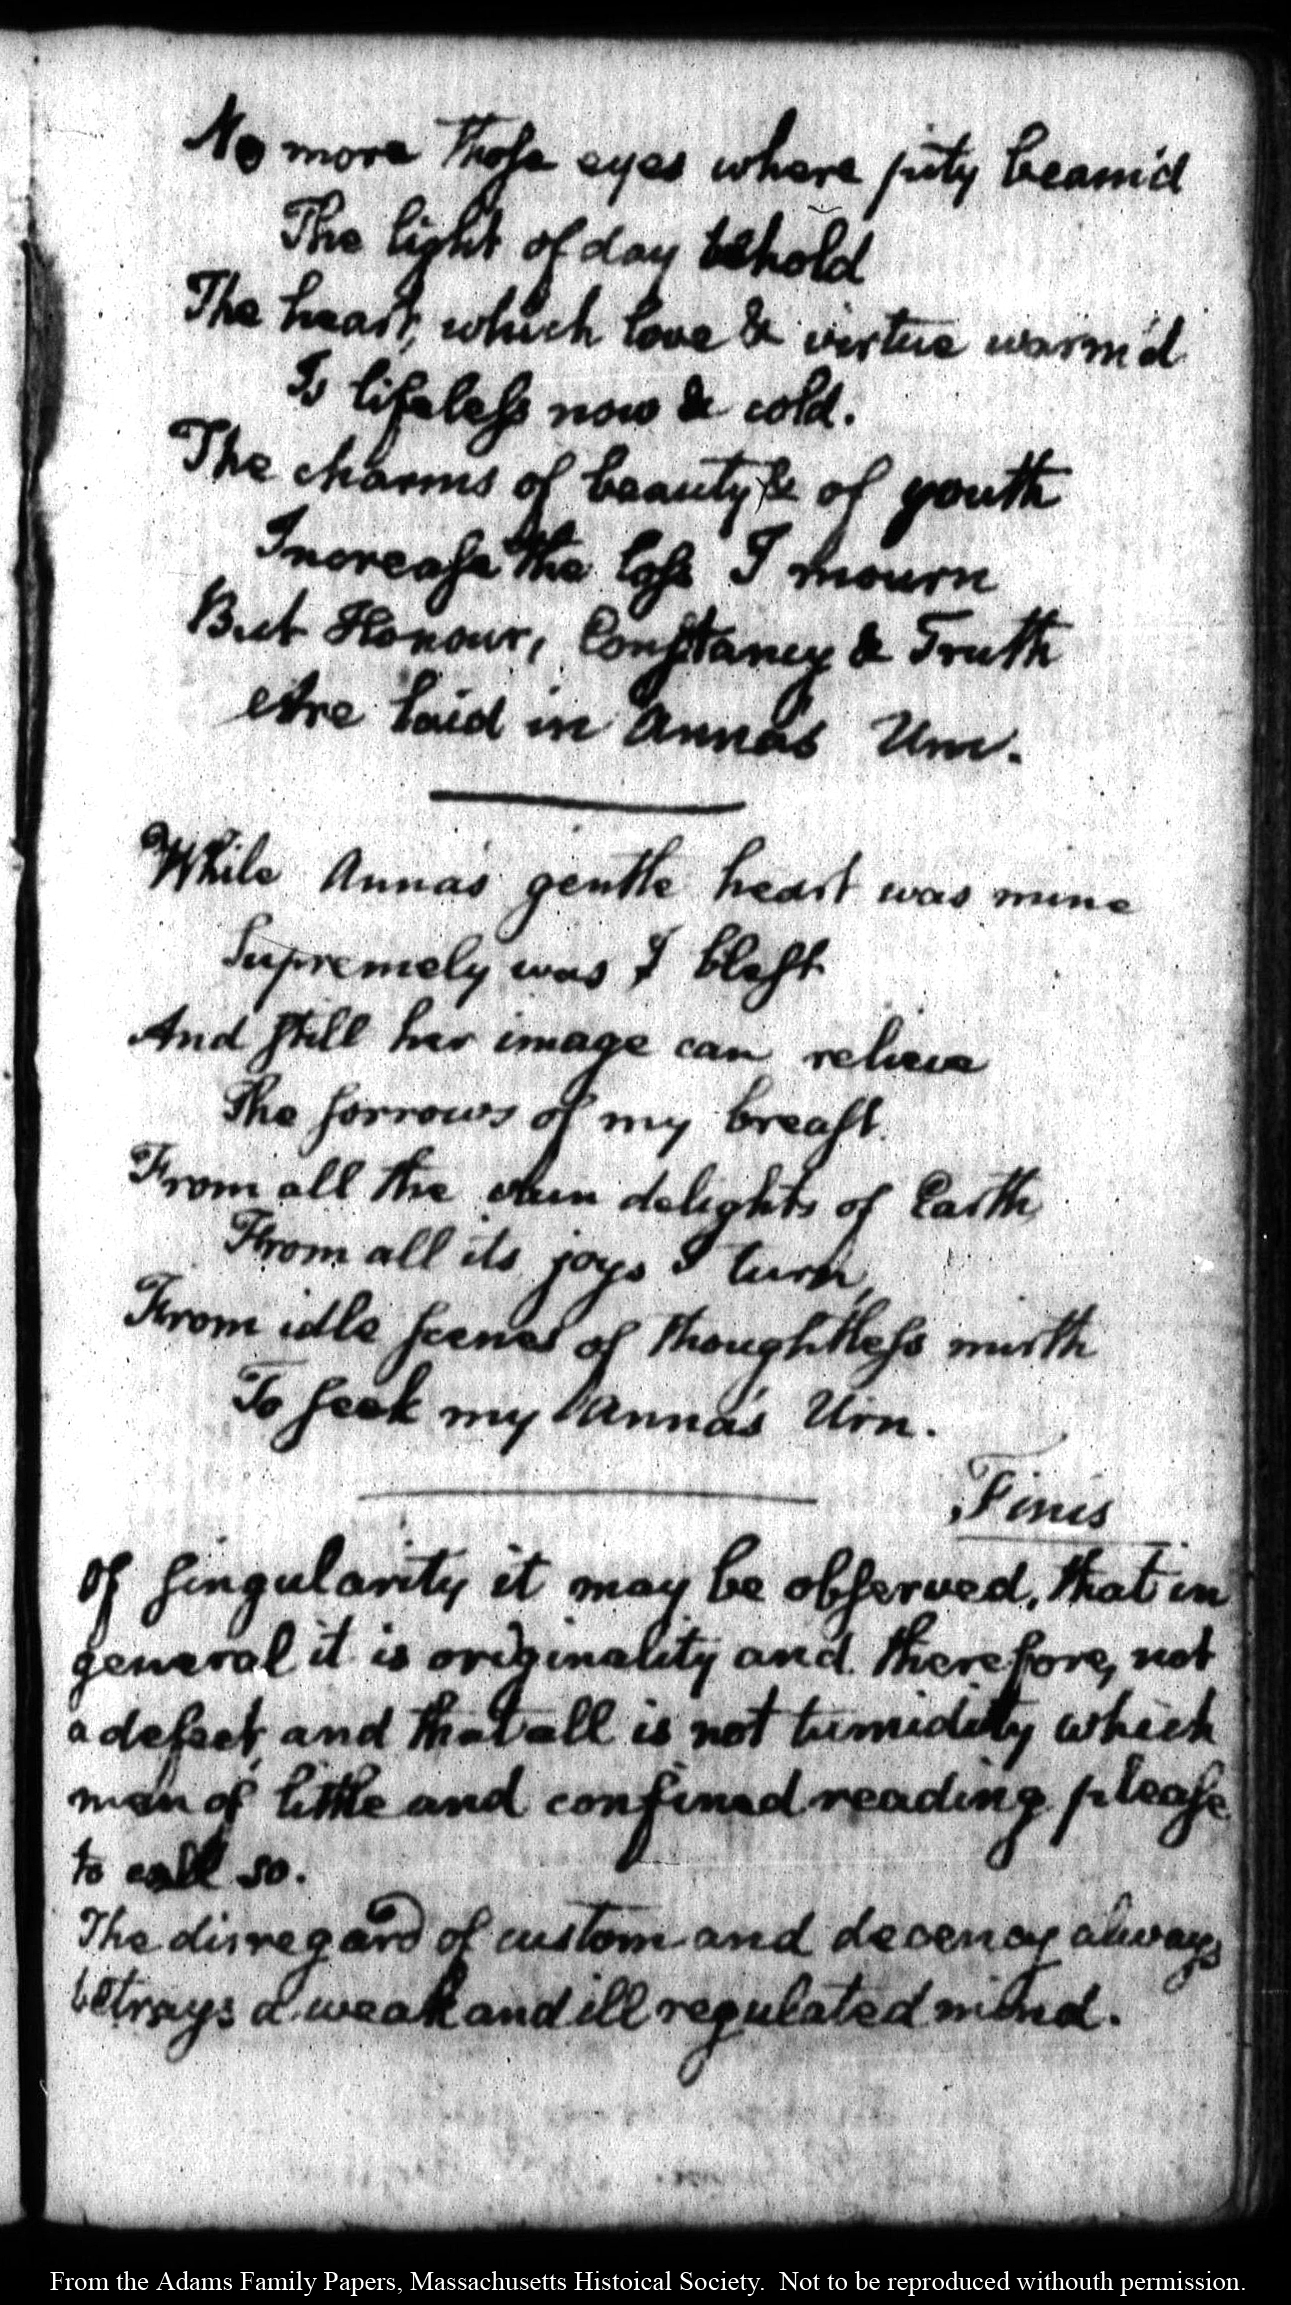 No more those eyes where pity beam'd
The light of day behold
The heart, which love & virtue warm'd
Is lifeless now & cold.
The charms of beauty & of youth
Increase the loss I mourn
But Honour, Constancy & Truth
Are laid in Anna's Urn.
While Anna's gentle heart was mine
Supremely was I blest
And still her image can relieve
The sorrows of my breast.
From all the vain delights of Earth
From all its joys I turn,
From idle scenes of thoughtless mirth
To seek my Anna's Urn.
Finis
Of singularity it may be observed, that in
general it is originality and therefore, not
a defect, and that all is not tumidity which
men of little and confined reading please
to call so.
The disregard of custom and decency always
betrays a weak and ill regulated mind.
From the Adams Family Papers, Massachusetts Histoical Society. Not to be reproduced withouth permission.